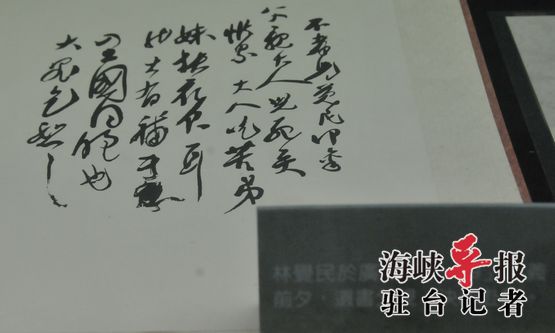 不孝兒覺民叩稟
父親大人兒死矣
惟累大人吃苦弟
妹缺衣食耳
然大有補於
全國同胞也
大罪乞恕之
林覺民於廣
前夕，遺書
海峡导报
驻台记者